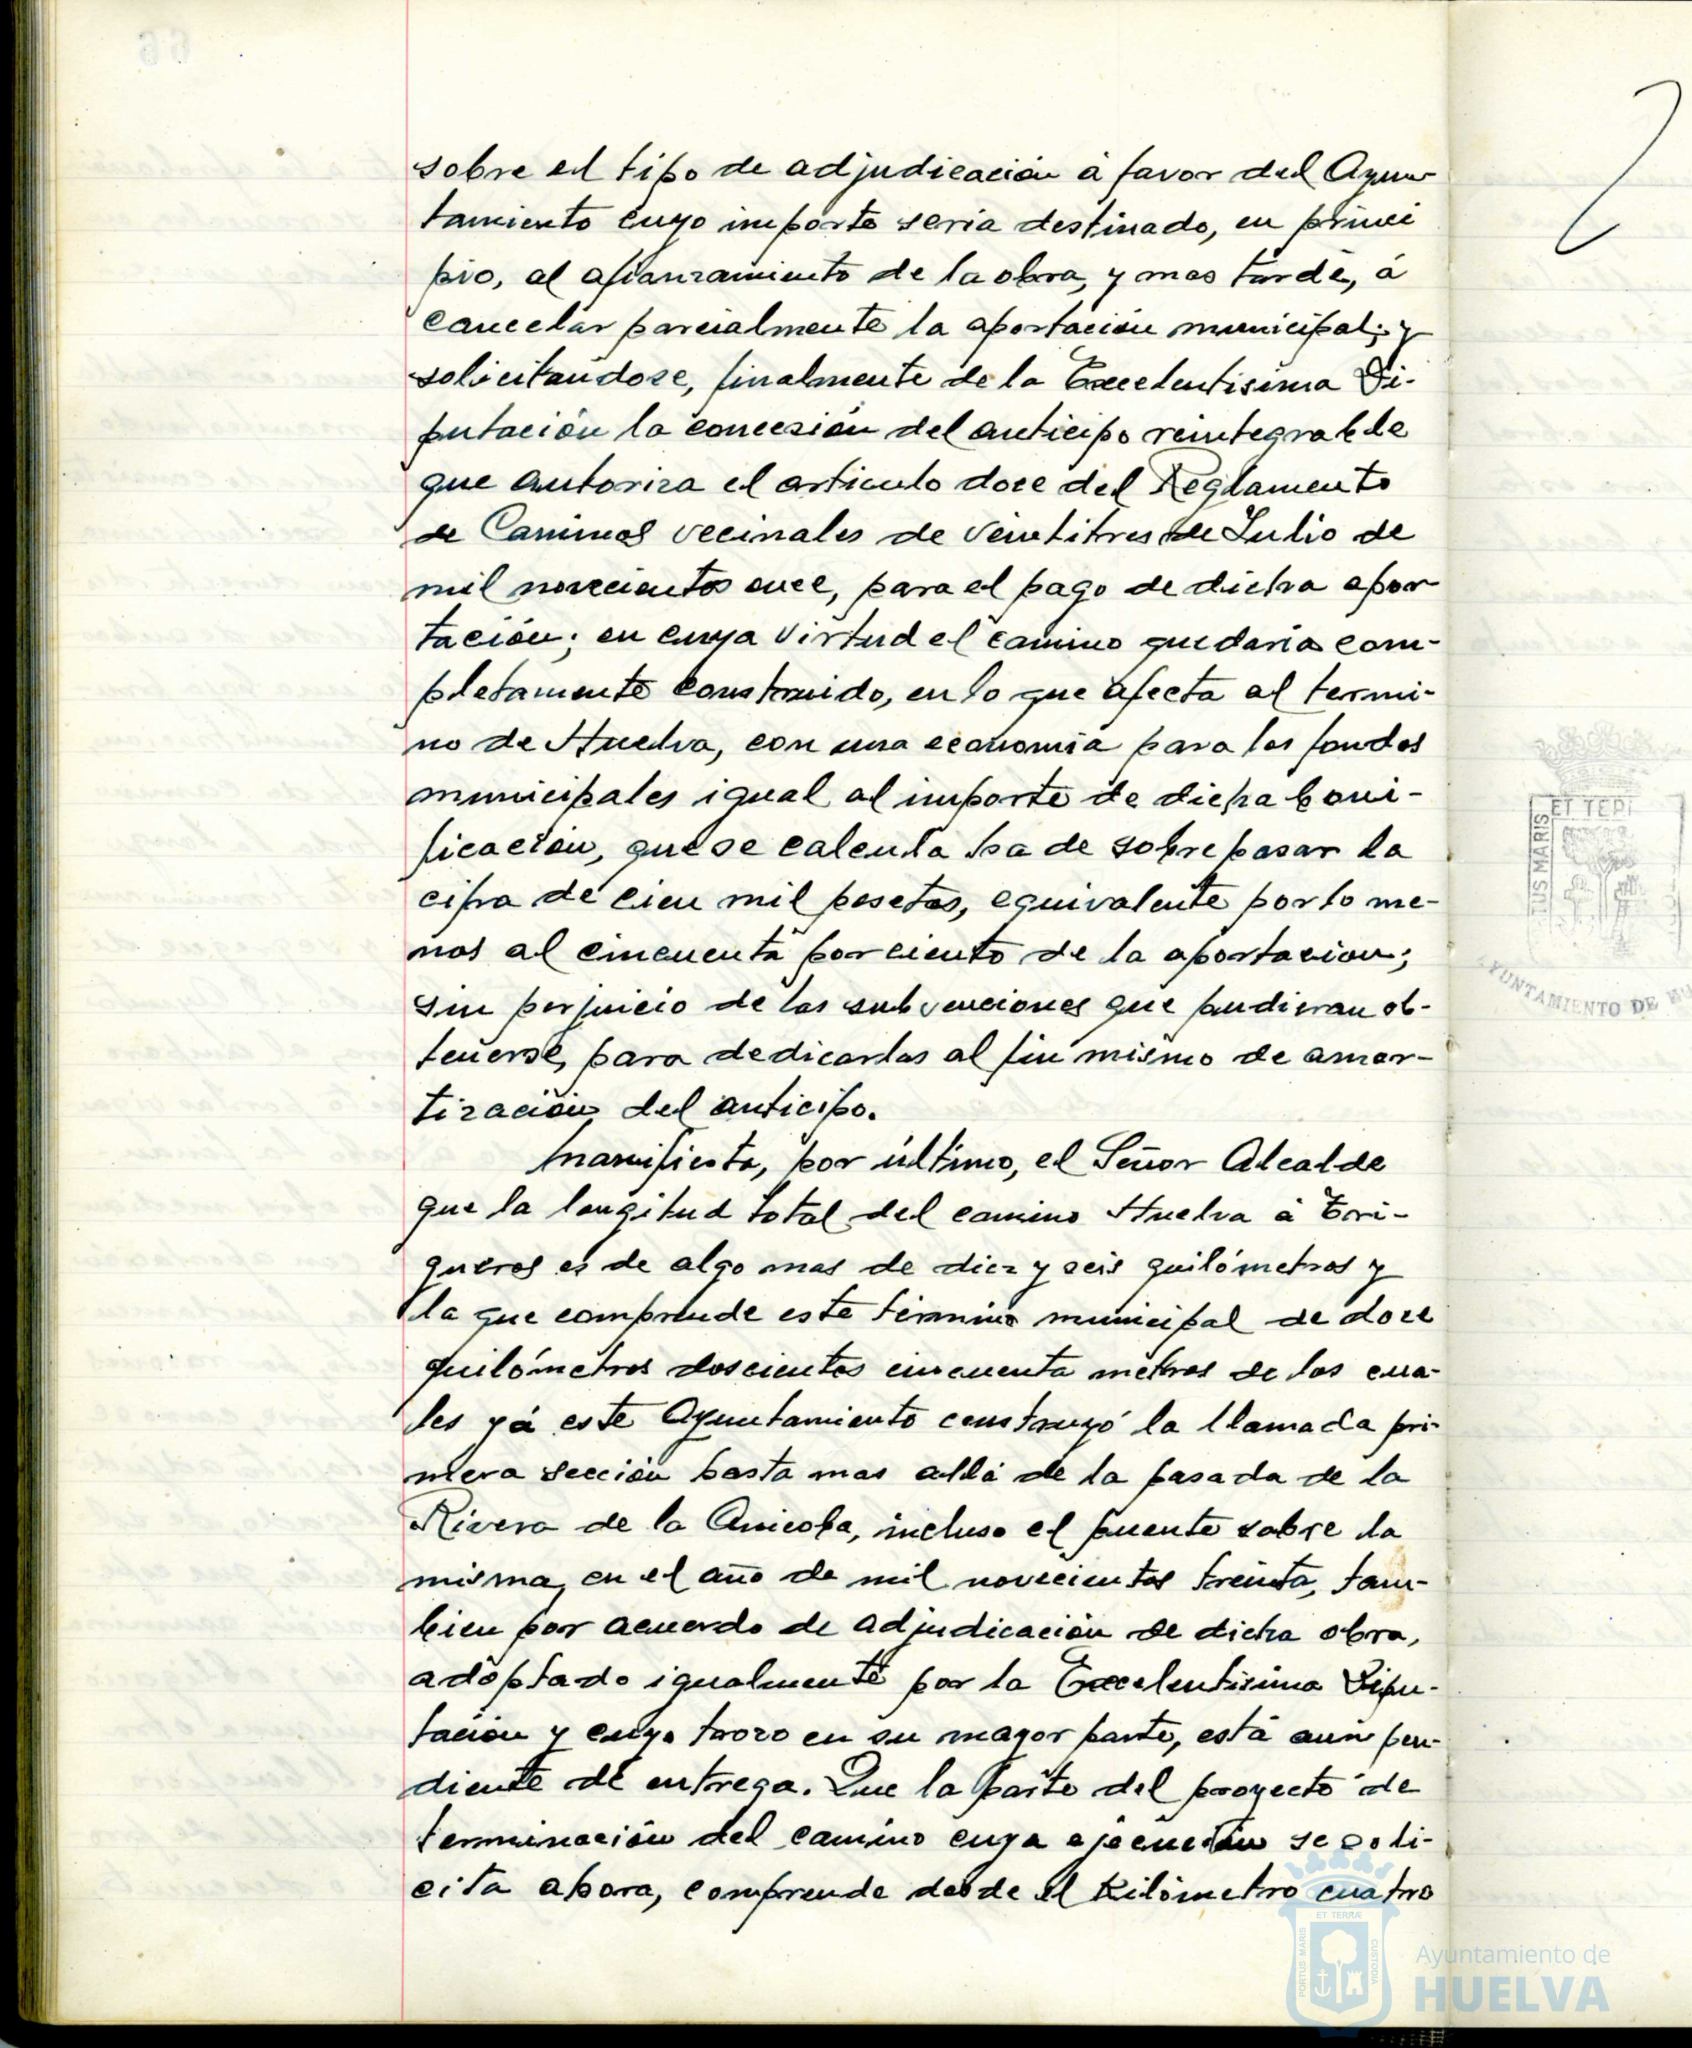 sobre el tipo de adjudicación á favor del Ayun-
tamiento cuyo importe seria destinado, en princi
pio, al afianzamiento de la obra, y mas tarde, á
cancelar parcialmente la aportación municipal; y
solicitandose, finalmente de la Excelentisima Di-
putación la concesión del anticipo reintegrable
que autoriza el articulo doce del Reglamento
de Caminos vecinales de veintitres de Julio de
mil novecientos once, para el pago de dicha apor-
tación; en cuya virtud el camino quedaria com-
pletamente construido, en lo que afecta al termi-
no de Huelva, con una economia para los fondos
municipales igual al importe de dicha boni-
ficación, que se calcula ha de sobrepasar la
cifra de cien mil pesetas, equivalente por lo me-
nos al cincuenta por ciento de la aportacion;
sin perjuicio de las subvenciones que pudieran ob-
tenerse, para dedicarlas al fin mismo de amor-
tización del anticipo.
Manifiesta, por último, el Señor Alcalde
que la longitud total del camino Huelva á Tri-
gueros es de algo mas de diez y seis quilómetros y
la que comprende este término municipal de doce
quilómetros doscientos cincuenta metros de los cua-
les yá este Ayuntamiento construyó la llamada pri-
mera sección hasta mas allá de la pasada de la
Rivera de la Anicoba, incluso el puente sobre la
misma, en el año de mil novecientos treinta, tam-
bien por acuerdo de adjudicación de dicha obra,
adoptado igualmente por la Excelentisima Dipu-
tación y cuyo trozo en su mayor parte, está aún pen-
diente de entrega. Que la parte del proyecto de
terminación del camino cuya ejecución se soli-
cita ahora, comprende desde el Kilómetro cuatro
ET TERR
TUS MARIS
AYUNTAMIENTO DE HU
PORTUS MARIS
ET TERRÆ
CUSTODIA
Ayuntamiento de
HUELVA